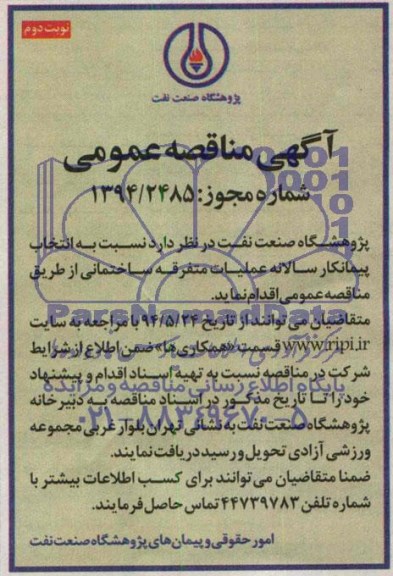 نوبت دوم
پژوهشگاه صنعت نفت
آگهی مناقصه عمومی
شماره مجوز: ۱۳۹۴/۲۴۸۵
پژوهشگاه صنعت نفت در نظر دارد نسبت به انتخاب
پیمانکار سالانه عملیات متفرقه ساختمانی از طریق
مناقصه عمومی اقدام نماید.
متقاضیان می توانند از تاریخ ۹۴/۵/۲۴ با مراجعه به سایت
www.ripi.ir قسمت «همکاری ها» ضمن اطلاع از شرایط
شرکت در مناقصه نسبت به تهیه اسناد اقدام و پیشنهاد
خود را تا تاریخ مذکور در اسناد مناقصه به دبیرخانه
پژوهشگاه صنعت نفت به نشانی تهران بلوار غربی مجموعه
ورزشی آزادی تحویل و رسید دریافت نمایند.
ضمنا متقاضیان می توانند برای کسب اطلاعات بیشتر با
شماره تلفن ۴۴۷۳۹۷۸۳ تماس حاصل فرمایند.
امور حقوقی و پیمان های پژوهشگاه صنعت نفت
ParsNamadData
پایگاه اطلاع رسانی مناقصه و مزایده
۰۲۱-۸۸۳۴۹۶۷۰-۵